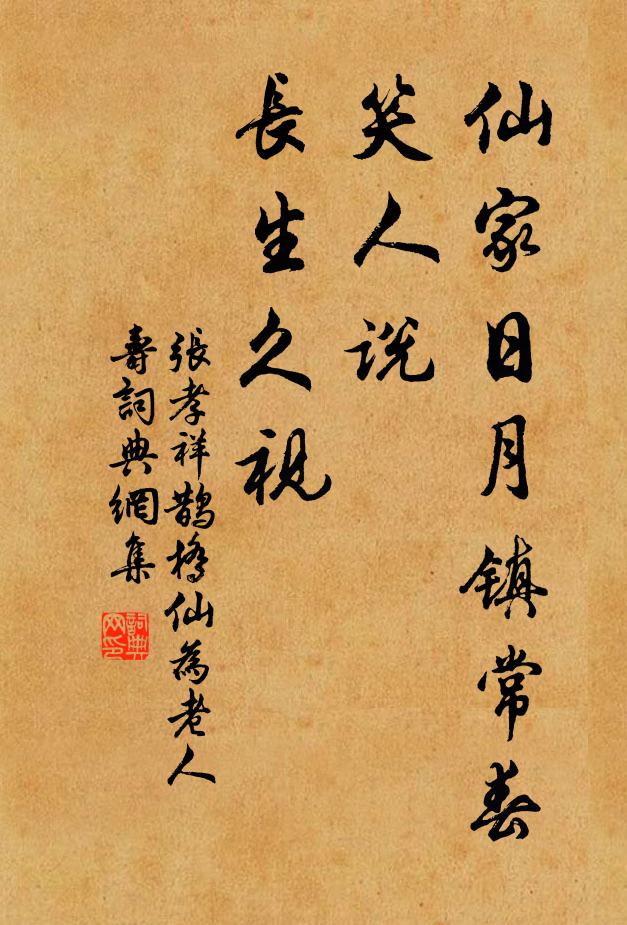 仙家日月镇常春
笑人说
長生久視
張孝祥鵲橋仙為老人
壽詞典網集
詞典網印